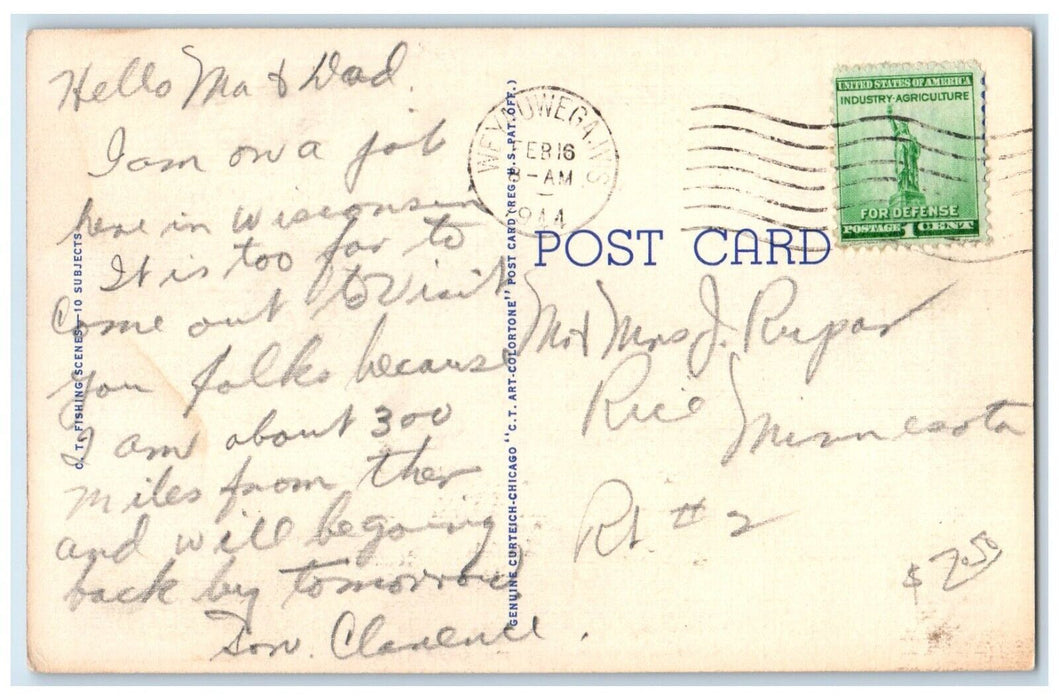 Hello Ma & Dad.
I am on a job
here in Wisconsin
It is too far to
Come out to visit
you folks because
I am about 300
miles from ther
and will be going
back by tomorrow
Son. Clarence.
C. T. FISHING SCENES—10 SUBJECTS
GENUINE CURTEICH-CHICAGO "C. T. ART-COLORTONE" POST CARD (REG. U.S. PAT. OFF.)
WEYAUWEGA, WIS
FEB 16
8-AM
1944
UNITED STATES OF AMERICA
INDUSTRY·AGRICULTURE
FOR DEFENSE
POSTAGE 1 CENT
POST CARD
Mr & Mrs J. Rupar
Rice Minnesota
Rt # 2
$ 7.50